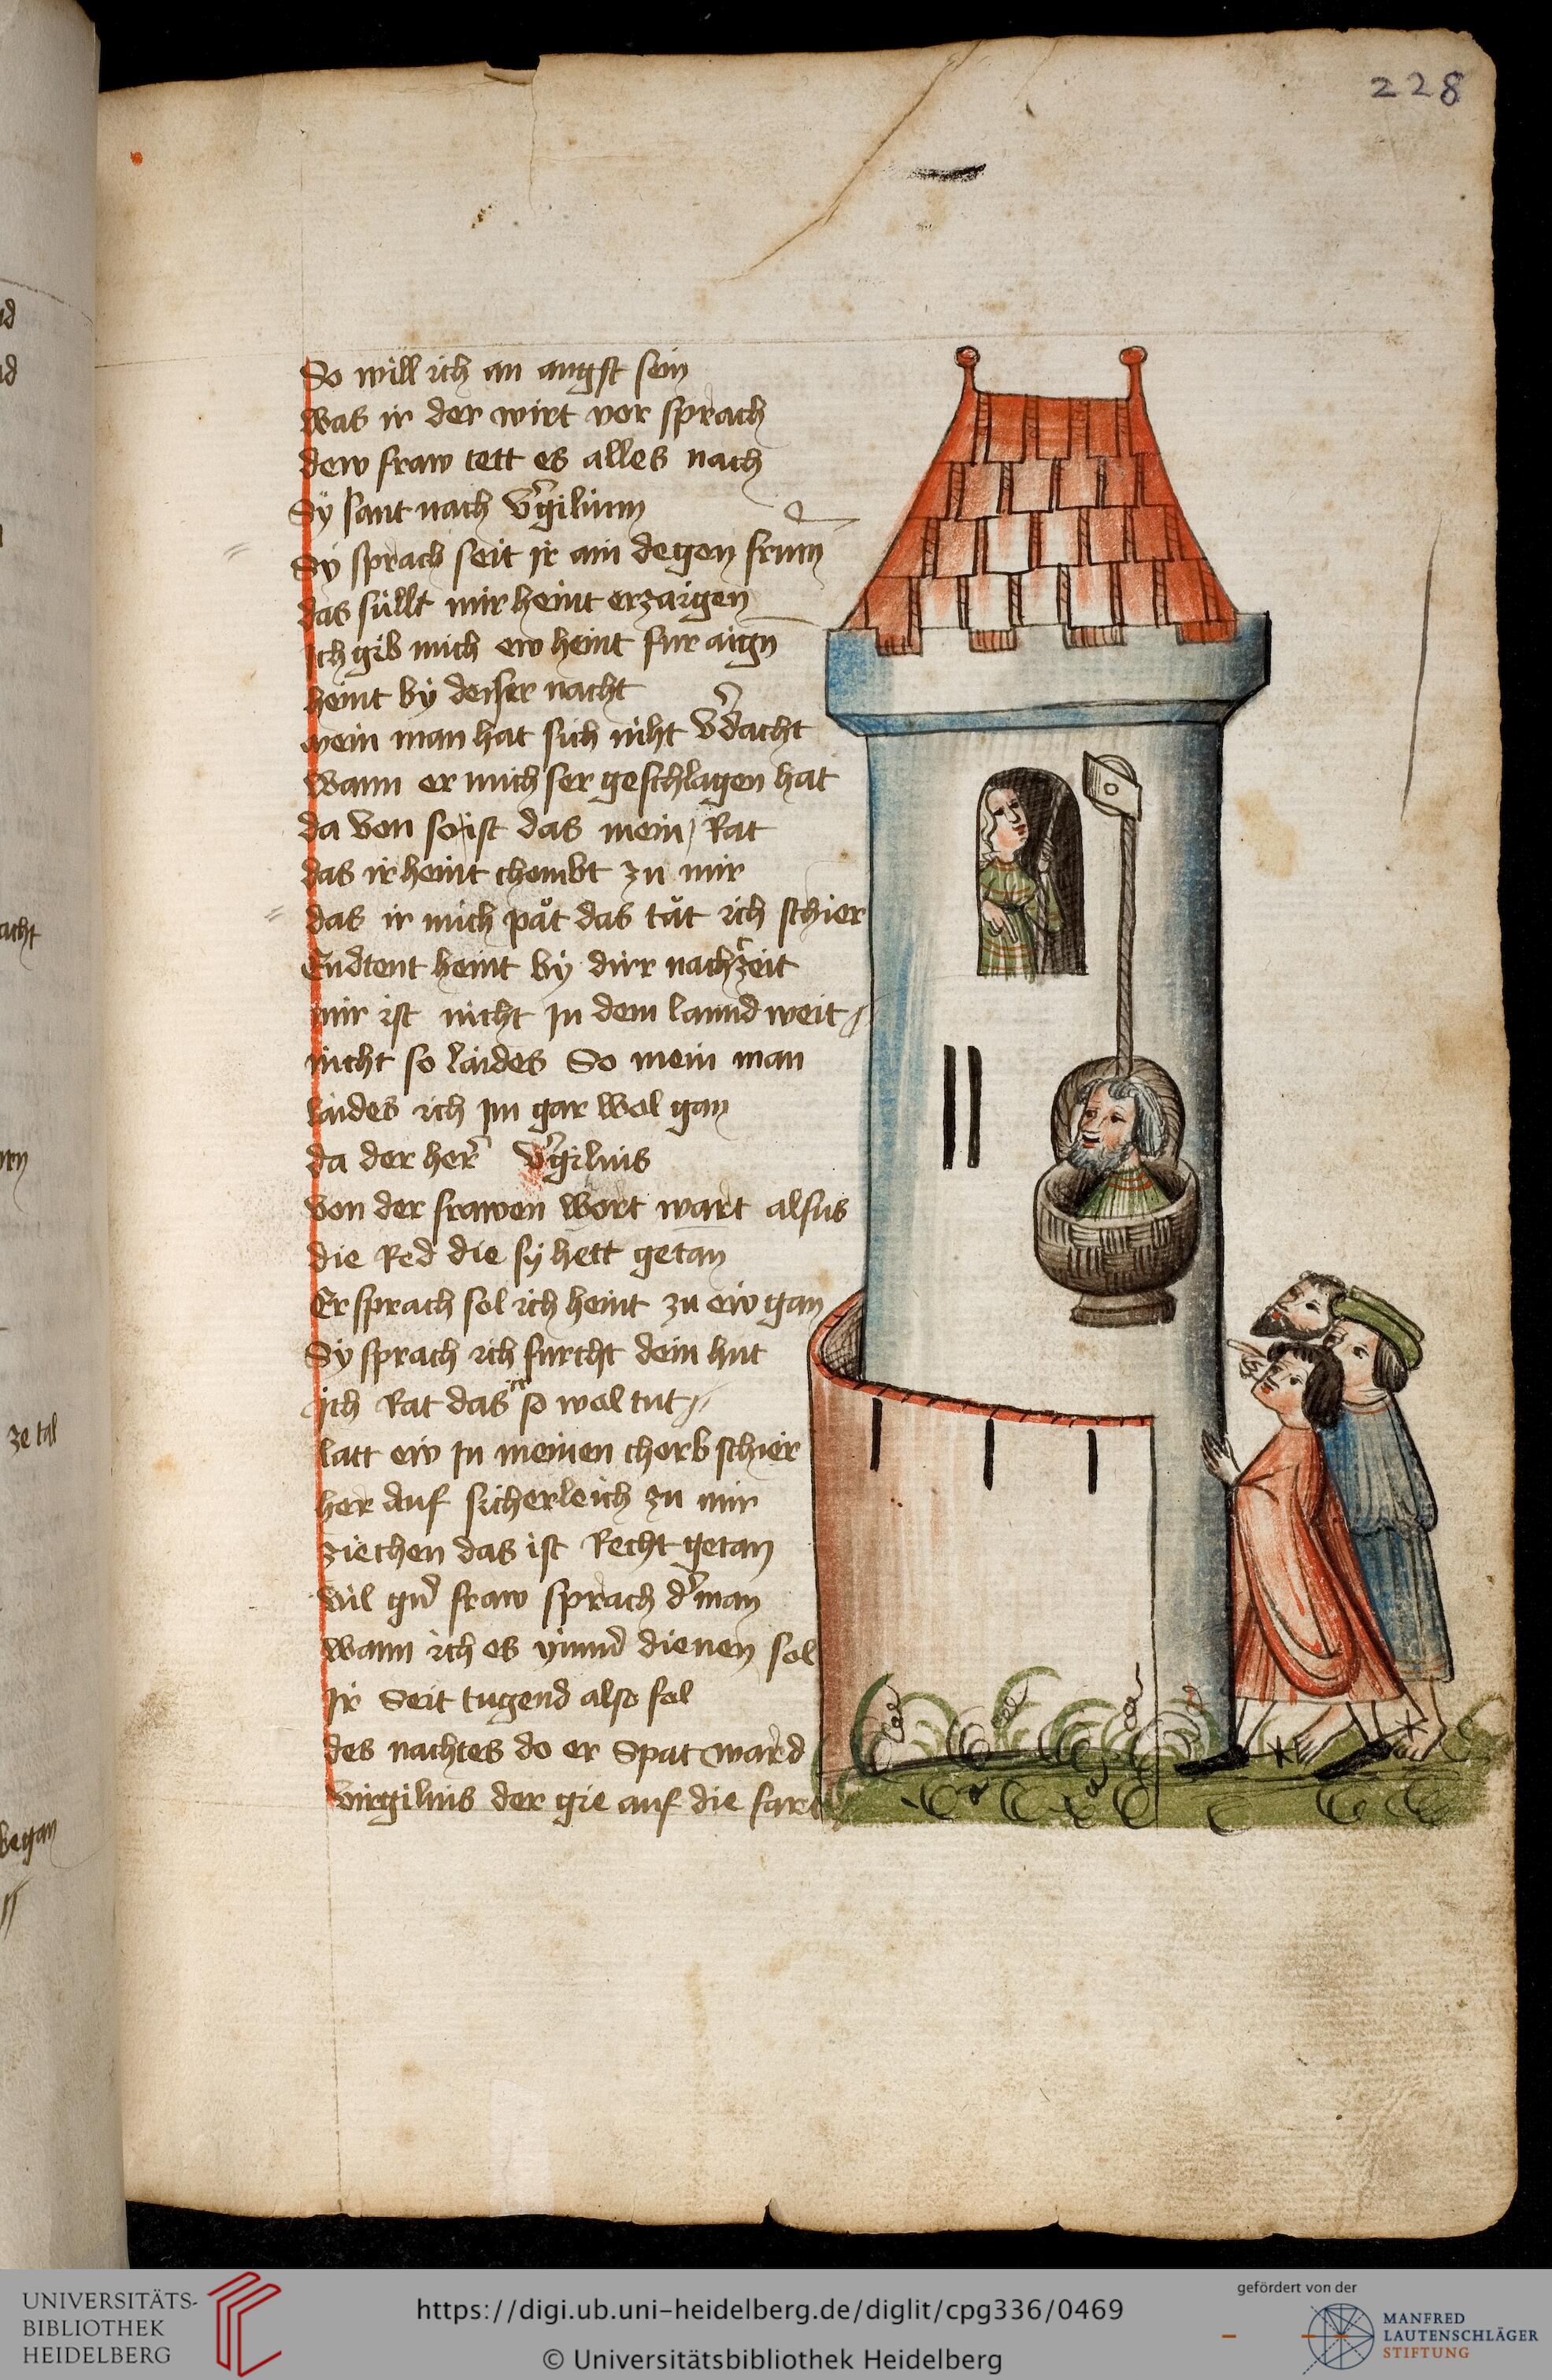 228
So will ich an angst sein
was ir der wirt vor sprach
dew fraw tett es alles nach
Sÿ sant nach v͛gilium
Sÿ sprach seit ir ain degen frum
das süllt mir heint erzaigen
Ich gib mich ew heint fur aign̄
heint bÿ deiser nacht
mein man hat sich niht v͛dacht
wann er mich ser geschlagen hat
da von so ist das mein Rat
das ir heint chombt zu mir
das ir mich påt das tåt ich schier
heint bÿ dirr nachtzeit
mir ist nicht In dem lannd weit
nicht so laides So mein man
laides ich im gar wol gan
da der her͛ v͛gilius
von der frawen wort wart alsus
die Red die sÿ hett getan
Er sprach sol ich heint zu ew gan
Sÿ sprach ich furcht dein hut
ich Rat das ir so wol tut
latt ew In meinen chorb schier
her auf sicherleich zu mir
ziechen das ist Recht getan
vil gůd fraw sprach d͛ man
wann ich es dienen sol
Ir Seit tugend also fol
des nachtes do er Spat ward
virgilius der gie auf die fart
acht
ze tal
began
UNIVERSITÄTS-
BIBLIOTHEK
HEIDELBERG
https://digi.ub.uni-heidelberg.de/diglit/cpg336/0469
© Universitätsbibliothek Heidelberg
gefördert von der
MANFRED
LAUTENSCHLÄGER
STIFTUNG